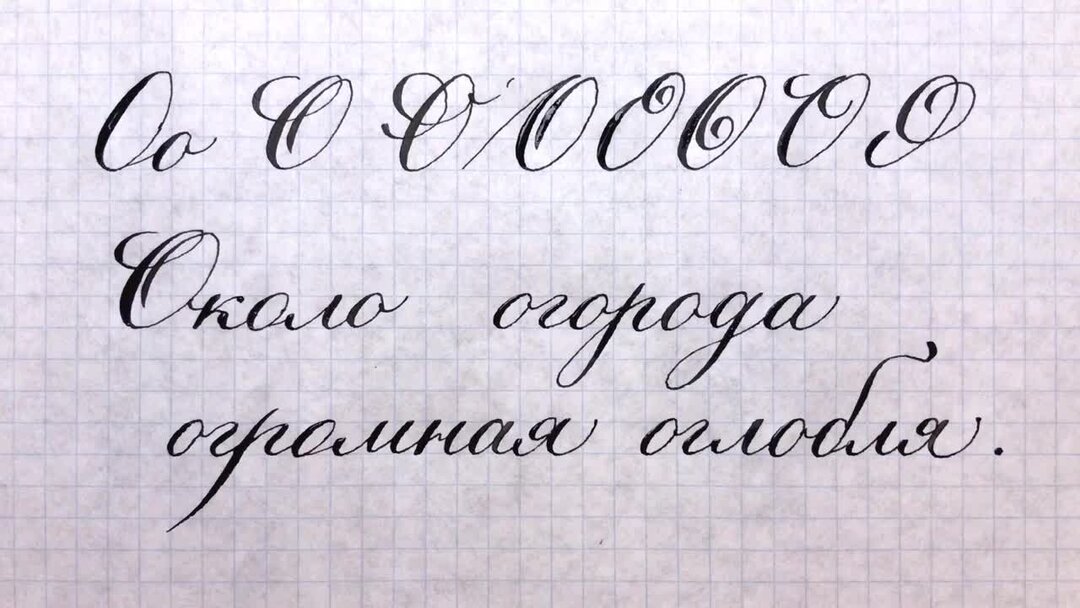 Оо О О О О О О О
Около огорода
огромная оглобля.